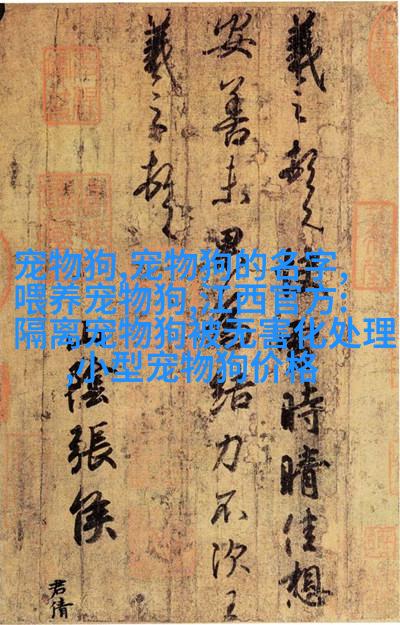 宠物狗,宠物狗的名字,
喂养宠物狗,江西官方:
隔离宠物狗被无害化处理
,小型宠物狗价格
羲之頓首時晴佳想
安善未果結力不次王
羲之頓首
山陰張侯
君倩